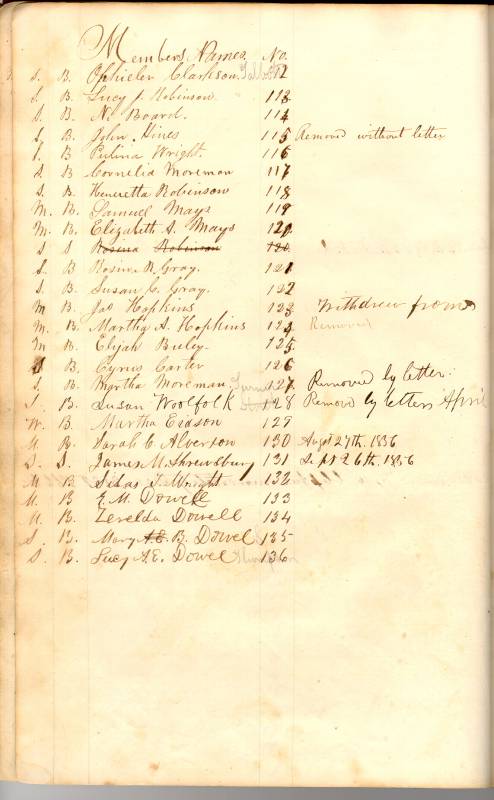 Members Names No.
S. B. Ophielia Clarkson. Talbott 112
S. B. Lucy J. Robinson. 113
S. B. N. Board. 114
S. B. John Hines 115 Removed without letter
S. B. Perlina Wright. 116
S B Cornelia Moreman 117
S. B. Henrietta Robinson 118
M. B. Samuel Mays 119
M. B. Elizabeth S. Mays 120
S S Rosina Robinson 120
S. B Rosine R Gray. 121
S. B. Susan C. Gray. 122
M B. Jas Hopkins 123 Withdrew from
M. B. Martha A. Hopkins 124 Removed
M B. Elijah 125
S B. Cyrus Carter 126
S. B. Myrtha Moreman. Turner 127 Removed by letter.
S B. Susan Woolfolk 128 Remove by letter April
W. B. Martha Eidson 129
M B. Sarah C Alverson 130 Augt 27th. 1856
S. S. James M. Shrewsbury 131 Sept 26th. 1856
M B. Silas T. Wright 132
M. B E. M. Dowell 133
M. B. Zerelda Dowell 134
S. B. Mary A.E. B. Dowel 135
S. B. Lucy A. E. Dowel Thompson 136